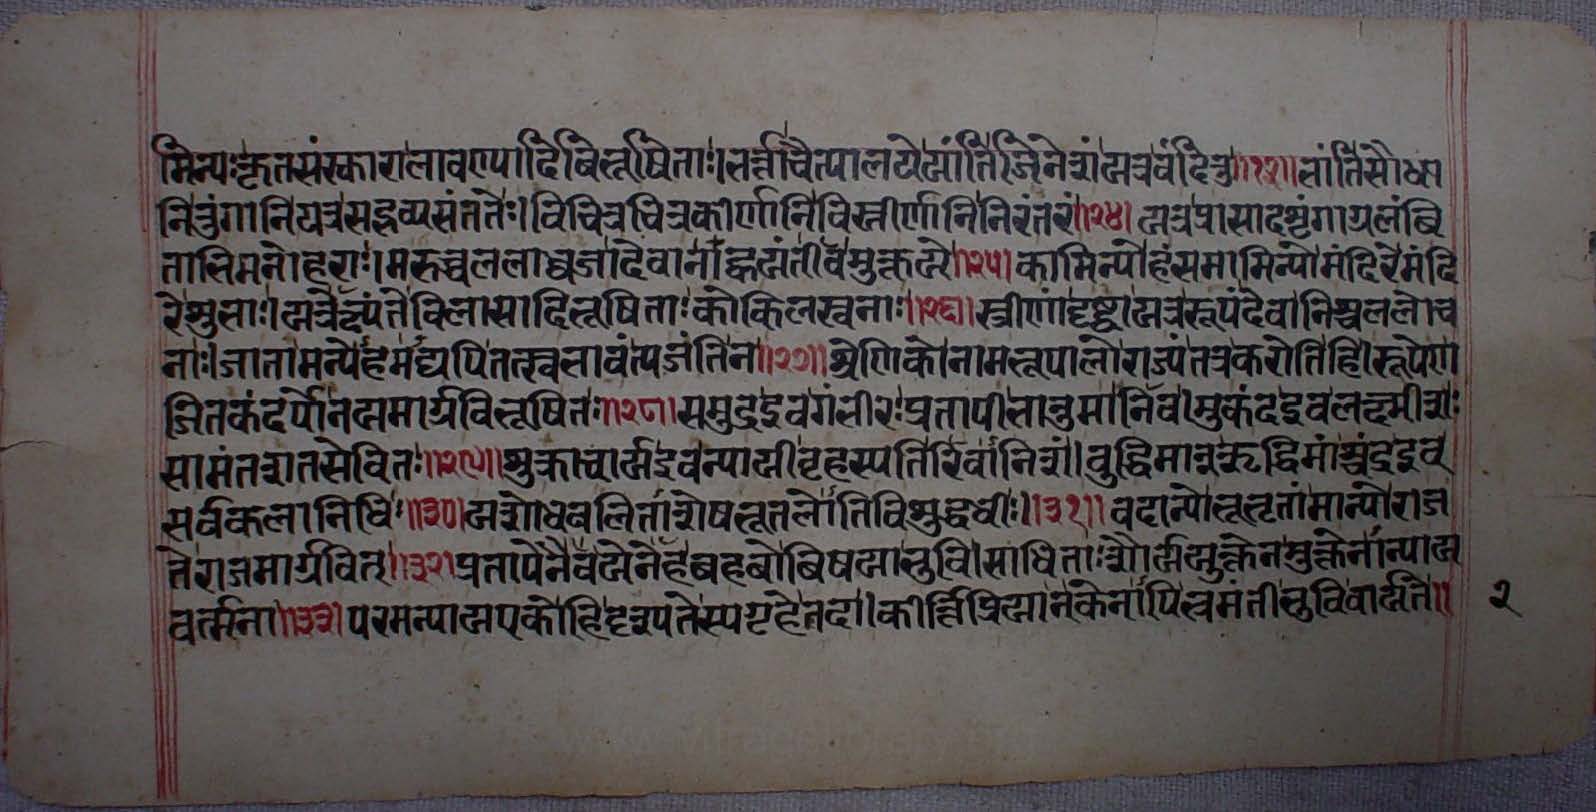 मिन्यः कृतसंस्कारालावण्यादिविभूषिताः। सर्त्राचैत्यालयेयांतिजिनेशंयत्रवंदितु॥२३॥ भांतिसौधा
नितुंगानियत्रसद्द्रव्यसंततैः। विचित्रचित्रकीर्णानिविस्तीर्णानिनिरंतरं॥२४॥ यत्रप्रासादशृंगाग्रलंबि
ताभिमनोहराः। मरुच्चलललाध्वजादेवानांह्वयंतीवमुक्तये॥२५॥ कामिन्योहंसगामिन्योमंदिरेमंदि
रेशुभाः। यत्रैवंपंतेविलासादिभूषिताः कोकिलस्वनाः॥२६॥ स्त्रीणांदृष्ट्वायत्ररूपंदेवानिश्चललोच
नाः। जातामन्येहमद्यपितत्स्वभावंत्यजंतिन॥२७॥ श्रेणिकोनामभूपालोराज्यंतत्रकरोतिहि। रूपेण
जितकंदर्पोनयमार्गविभूषितः॥२८॥ समुद्रइवगंभीरःप्रतापीभानुमानिव। मुकंदइवलक्ष्मीशः
सामंतशतसेवितः॥२९॥ शुक्राचार्यइवन्यायीवृहस्पतिरिवानिशं। बुद्धिमान्ऋद्धिमांश्चंद्रइव
सर्वकलानिधिः॥३०॥ यशोधवलिताशेषभूतलोतिविशुद्धधीः।॥३१॥ वदान्योभूभृतांमान्योराज
तेराजमार्गवित्॥३२॥ प्रतापेनैवयेनेहबहवोविषयाभुवि। साधिताःशौर्ययुक्तेनमुक्तेनान्याय
वर्त्मना॥३३॥ परमन्यायएकोहिदृश्यतेस्यगृहेतदा। कीर्त्तिप्रियानकेनापिभ्रमंतीभुविवार्यते॥
२